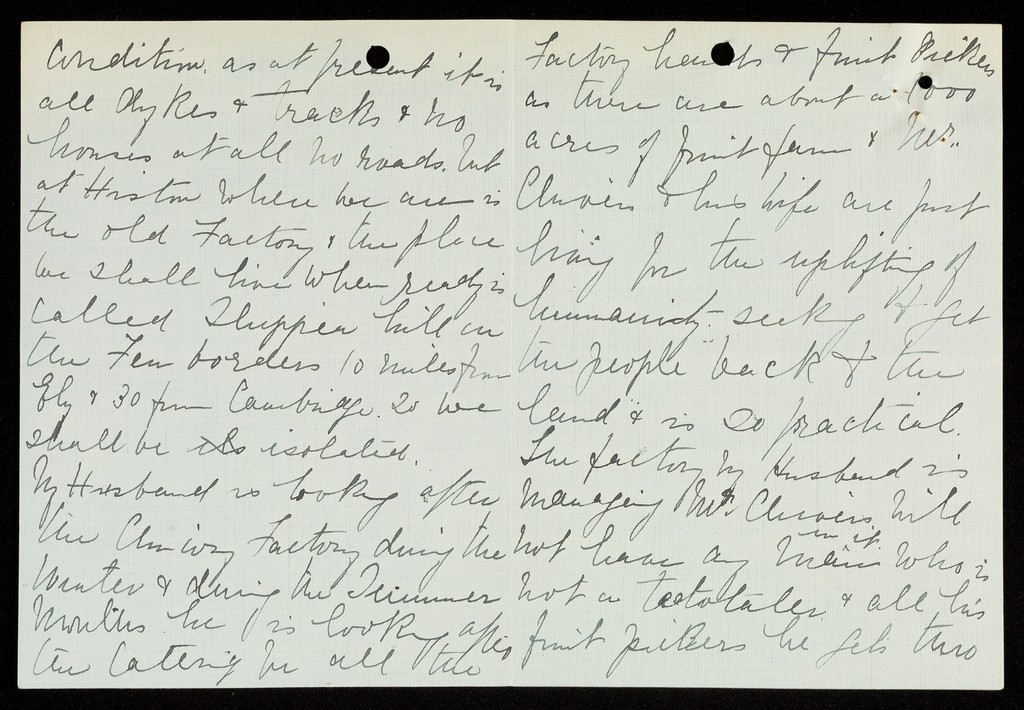 Condition. as at present it is
all Dykes & tracks & no
houses at all no roads. but
at Histon where we are is
the old Factory & the place
we shall live when ready is
called Shippea hill on
the Fen borders 10 miles from
Ely & 30 from Cambridge. So we
shall be isolated.
My Husband is looking after
the Factory during the
Winter & during the Summer
Months he is looking after
the Catering for all the
Factory hands & fruit Pickers
as there are about a 1000
acres of fruit farm & Mr.
Chivers & his wife are just
living for the uplifting of
humanity. seeking to get
the people "back to the
land" & is so practical.
The factory my Husband is
managing Mr. Chivers will
not have any man in it who is
not a tetotaler & all his
fruit pickers he gets thro